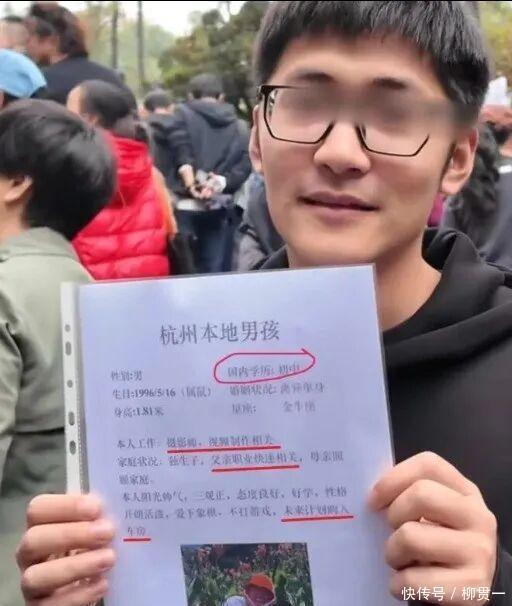 杭州本地男孩
性别:男 国内学历: 初中
生日:1996/5/16（属鼠） 婚姻状况: 离异单身
身高:1.81米 星座: 金牛座
本人工作: 摄影师，视频制作相关
家庭状况: 独生子，父亲职业快递相关，母亲照
顾家庭。
本人阳光帅气，三观正，态度良好，好学，性格
开朗活泼，爱下象棋，不打游戏，未来计划购入
车房
快传号 / 柳贯一